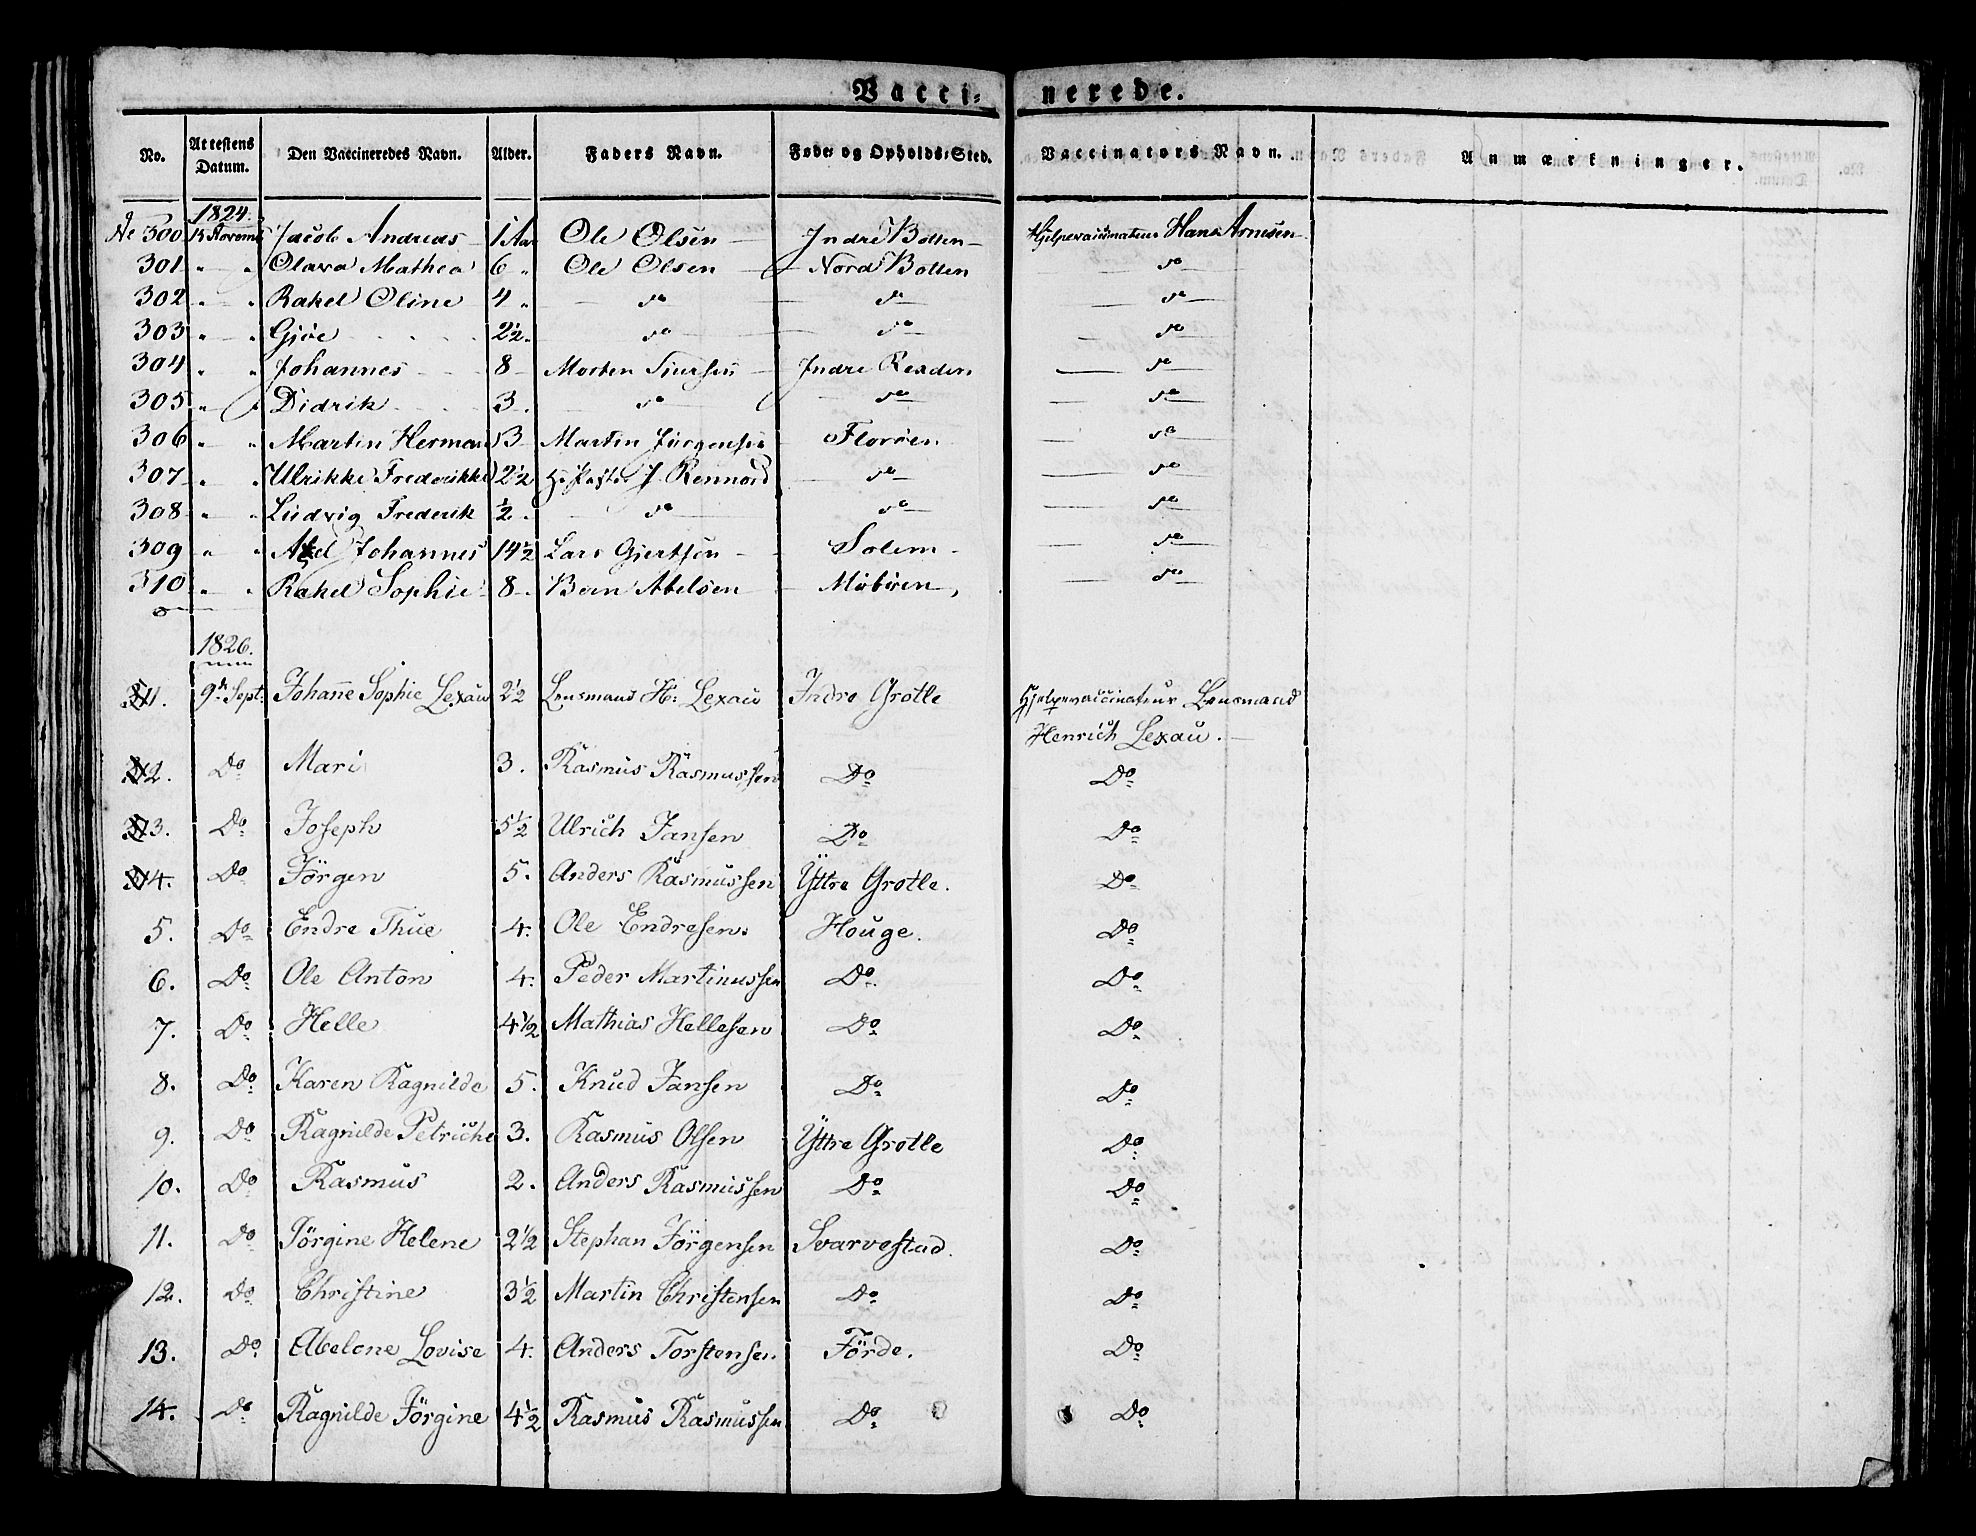 Vacci- nerede.
No. Attestens Datum. Den Vaccineredes Navn. Alder. Faders Navn. Føde- og Opholds-Sted. Vaccinateurs Navn. Anmærkninger.
1824.
No 300 15 Novemb Jacob Andreas 1 Aar Ole Olsen Indre Botten Hjelpevaccinateur Hans Arnesen
301 " " Olava Mathea 6 " Ole Olsen Nord Botten do
302 " " Rakel Oline 4 " do do do
303 " " Gjöe 2½ do do do
304 " " Johannes 8 Morten Siursen Indre do
305 " " Didrik 3 do do do
306 " " Martin Herman 3 Martin Jörgensen Floröen do
307 " " Ulrikke Frederikke 2½ Hr Pastor J. Rennord do do
308 " " Ludvig Frederik ½ do do do
309 " " Johannes 14½ Lars Gjertsen Solem do
310 " " Rakel Sophie 8 Bern Abelsen do
1826.
1. 9de Sept. Johanne Sophie Lexau 2½ Lensmand H: Lexau Indre Grotle Hjelpevaccinateur Lensmand
Henrich Lexau.
2. Do Mari 3. Rasmus Rasmussen Do Do
3. Do Joseph 5½ Ulrich Jansen Do Do
4. Do Jörgen 5. Anders Rasmussen Yttre Grotle. Do
5. Do Endre Thue 4. Ole Endresen. Houge. Do
6. Do Ole Anton 4. Peder Martinussen Do Do
7. Do Helle 4½ Mathias Hellesen Do Do
8. Do Karen Ragnilde 5. Knud Jansen Do Do
9. Do Ragnilde Petriche 3. Rasmus Olsen Yttre Grotle Do
10. Do Rasmus 2. Anders Rasmussen Do Do
11. Do Jörgine Helene 2½ Stephan Jörgensen Svarvestad. Do
12. Do Christine 3½ Martin Christensen Do Do
13. Do Abelone Lovise 4. Anders Torstensen Förde. Do
14. Do Ragnilde Jörgine 4½ Rasmus Rasmussen Do Do